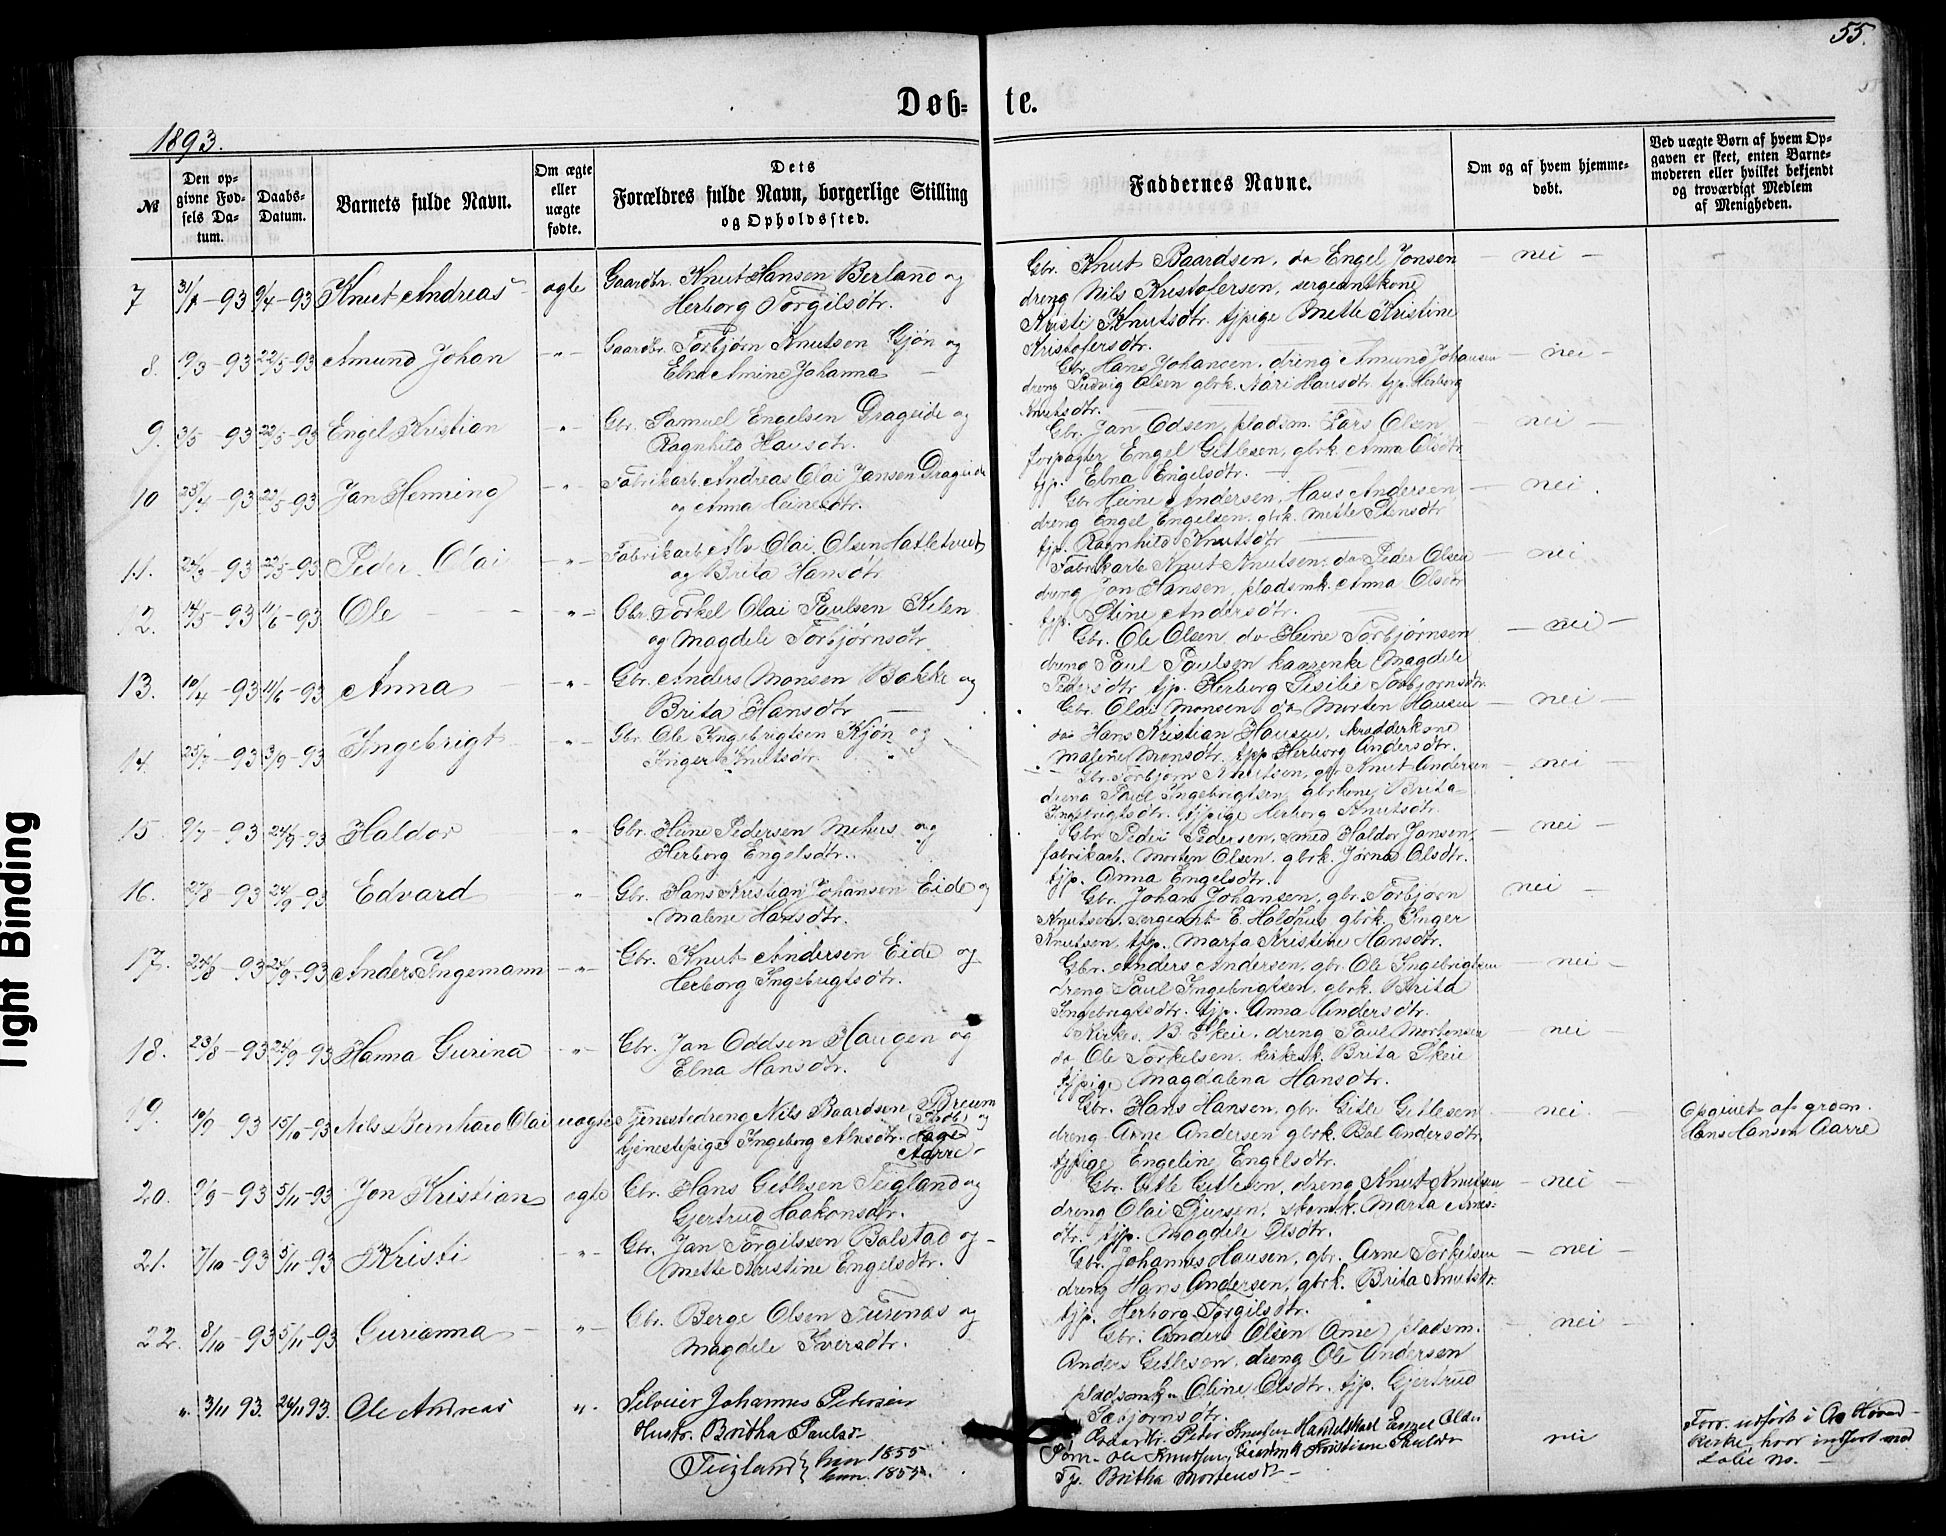 55.
Døb- te.
1893.
№
Den opgivne Fødsels Datum.
Daabs-Datum.
Barnets fulde Navn.
Om ægte eller uægte fødte.
Dets Forældres fulde Navn, borgerlige Stilling og Opholdssted.
Faddernes Navne.
Om og af hvem hjemmedøbt.
Ved uægte Børn af hvem Opgaven er skeet, enten Barnemoderen eller hvilket bekjendt og troværdigt Medlem af Menigheden.
7 31/1-93 9/4-93 Knut Andreas ægte Gaardbr. Knut Hansen Berland og
Herborg Torgilsdtr.
Gbr. Knut Baardsen, do Engel Jonsen - nei -
dreng Nils Kristofersen, sergeantkone
Kristi Knutsdtr. tjpige Mette Kristine
Kristofersdtr.
8. 9/3-93 22/5-93 Amund Johan -"- Gaardbr. Torbjørn Knutsen Gjøn og
Elna Amine Johanna -
Gbr. Hans Johansen, dreng Amund Johansen - nei -
dreng Ludvig Olsen gbrk. Kari Hansdtr. tjp. Herborg
Knutsdtr.
9. 3/5-93 22/5-93 Engel Kristian -"- Gbr. Samuel Engelsen Drageide og
Ragnhild Hansdtr.
Gbr. Jan Odsen, pladsm. Lars Olsen - nei -
forpagter Engel Gitlesen, gbrk. Anna Olsdtr
tjp. Elna Engelsdtr. -
10 25/4-93 22/5-93 Jan Henning -"- Fabrikarb. Andreas Olai Jansen Drageide
og Anna Heinesdtr.
Gbr Heine Andersen, Hans Andersen - nei.
dreng Engel Engelsen. gbrk. Mette Stensdtr
tjp. Ragnhild Knutsdtr
11. 24/3-93 22/5-93 Peder Olai -"- Fabrikarb. Olai Olsen Hatletveit
og Brita Hansdtr.
Fabrikarb Knut Knutsen, do Peder Olsen - nei
dreng Jon Hansen, pladsmk. Anna Olsdtr
tjp. Stine Andersdtr.
12. 14/5-93 11/6-93 Ole -"- Gbr. Torkel Olai Paulsen Kilen
og Magdele Torbjørnsdtr.
Gbr. Ole Olsen, do Heine Torbjørnsen - nei -
dreng Paul Paulsen kaarenke Magdele
Pedersdtr tjp. Herborg Sesilie Torbjørnsdtr.
13. 10/4-93 11/6-93 Anna -"- Gbr. Anders Monsen Bakke og
Brita Hansdtr -
Gbr. Olai Monsen, do Morten Hansen - nei -
do Hans Kristian Hansen, skradderkone
Malene Monsdtr. tjp Herborg Andersdtr.
14. 25/7-93 3/9-93 Ingebrigt -"- Gbr. Ole Ingebrigtsen Kjøn og
Inger Knutsdtr.
Gbr. Torbjørn Knutsen, gbr Knut Andersen - nei -
dreng Paul Ingebrigtsen, gbrkone Brita
Ingebrigtsdtr. tjpige Herborg Knutsdtr.
15. 9/7-93 24/9-93 Haldor -"- Gbr. Heine Pedersen Mehus og
Herborg Engelsdtr.
Gbr. Peder Pedersen, smed Haldor Jansen, - nei -
fabrikarb. Morten Olsen, gbrk. Jørna Olsdtr.
tjp. Anna Engelsdtr.
16. 27/8-93 24/9-93 Edvard -"- Gbr. Hans Kristian Johansen Eide og
Malene Hansdtr.
Gbr. Johan Johansen, gbr. Torbjørn nei -
Knutsen, sergeant E. Holdhus gbrk. Inger
Knutsen, tjp. Marta Kristine Hansdtr.
17. 24/8-93 24/9-93 Anders Ingemann -"- Gbr. Knut Andersen Eide og
Herborg Ingebrigtsdtr.
Gbr. Anders Andersen, gbr. Ole Ingebrigtsen - nei -
dreng Paul Ingebrigtsen, gbrk. Brita
Ingebrigtsdtr. tjp. Anna Andersdtr.
18. 23/8-93 24/9-93 Hanna Gurina -"- Gbr. Jan Oddsen Haugen og
Elna Hansdtr.
Kirkes. B. Skeie, dreng Paul Mortensen - nei -
do Ole Torkelsen. kirkesk. Brita Skeie
tjpige Magdalena Hansdtr.
19. 10/9 93 15/10-93 Nils Bernhard Olai uægte Tjenestedreng Nils Baardsen Breivm
tjenestepige Ingeborg Alnsdtr. Aarre
Gbr. Hans Hansen, gbr. Gitle Gitlesen nei.
dreng Arne Andersen gbrk. Bol Andersdtr.
tjpige Engeline Engelsdtr.
Opgivet af grdm.
Hans Hansen Aarre
20. 9/9-93 5/11-93 Jon Kristian ægte Gbr. Hans Gitlesen Teigland og
Gjertrud Haakonsdtr.
Gbr. Gitle Gitlesen, dreng Knut Knutsen - nei -
dreng Olai Sjursen, skomk. Marta Arnes-
dtr. tjp. Magdele Olsdtr.
21. 7/10-93 5/11-93 Kristi -"- Gbr. Jan Torgilssen Bolstad og -
Mette Kristine Engelsdtr.
Gbr. Johannes Hansen, gbr. Arne Torkelsen - nei -
dreng Hans Andersen, gbrk. Brita Knutsdtr.
tjp. Herborg Torgilsdtr.
22. 8/10-93 5/11-93 Gurianna - "- Gbr. Berge Olsen Turenæs og
Magdele Iversdtr.
Gbr. Anders Olsen Arne, pladsm. - nei -
Anders Gitlesen, dreng Ole Andersen
pladsmk. Oline Olsdtr. tjp. Gjertrud
Torbjørnsdtr.
". 3/11 93. 26/11 93. Ole Andreas ". Selveier Johannes Petersen
Hustr. Britha Paulsdr
Teigland { han 1855 hun 1855.
Gaardbr. Peter Knutsen Handelskarl Engel Olsen
Tom. Ole Knutsen, Kristiane Paulsdr nei
Tj. Britha Mortensdr -
Forr. udført i Aa Hoved-
kirke, hvor indført med
Løbe no.
Tight Binding